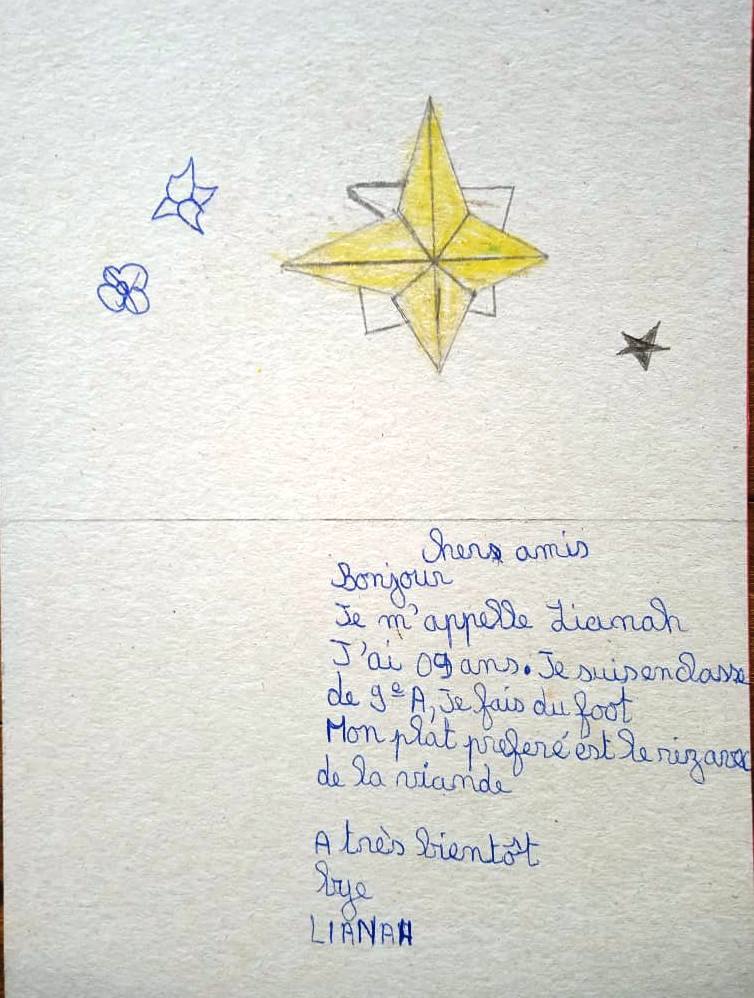 Chers amis
Bonjour
Je m'appelle Lianah
J'ai 09 ans. Je suis en classe
de 9e A, Je fais du foot
Mon plat preferé est le riz avec
de la viande
A très bientôt
bye
LIANAH